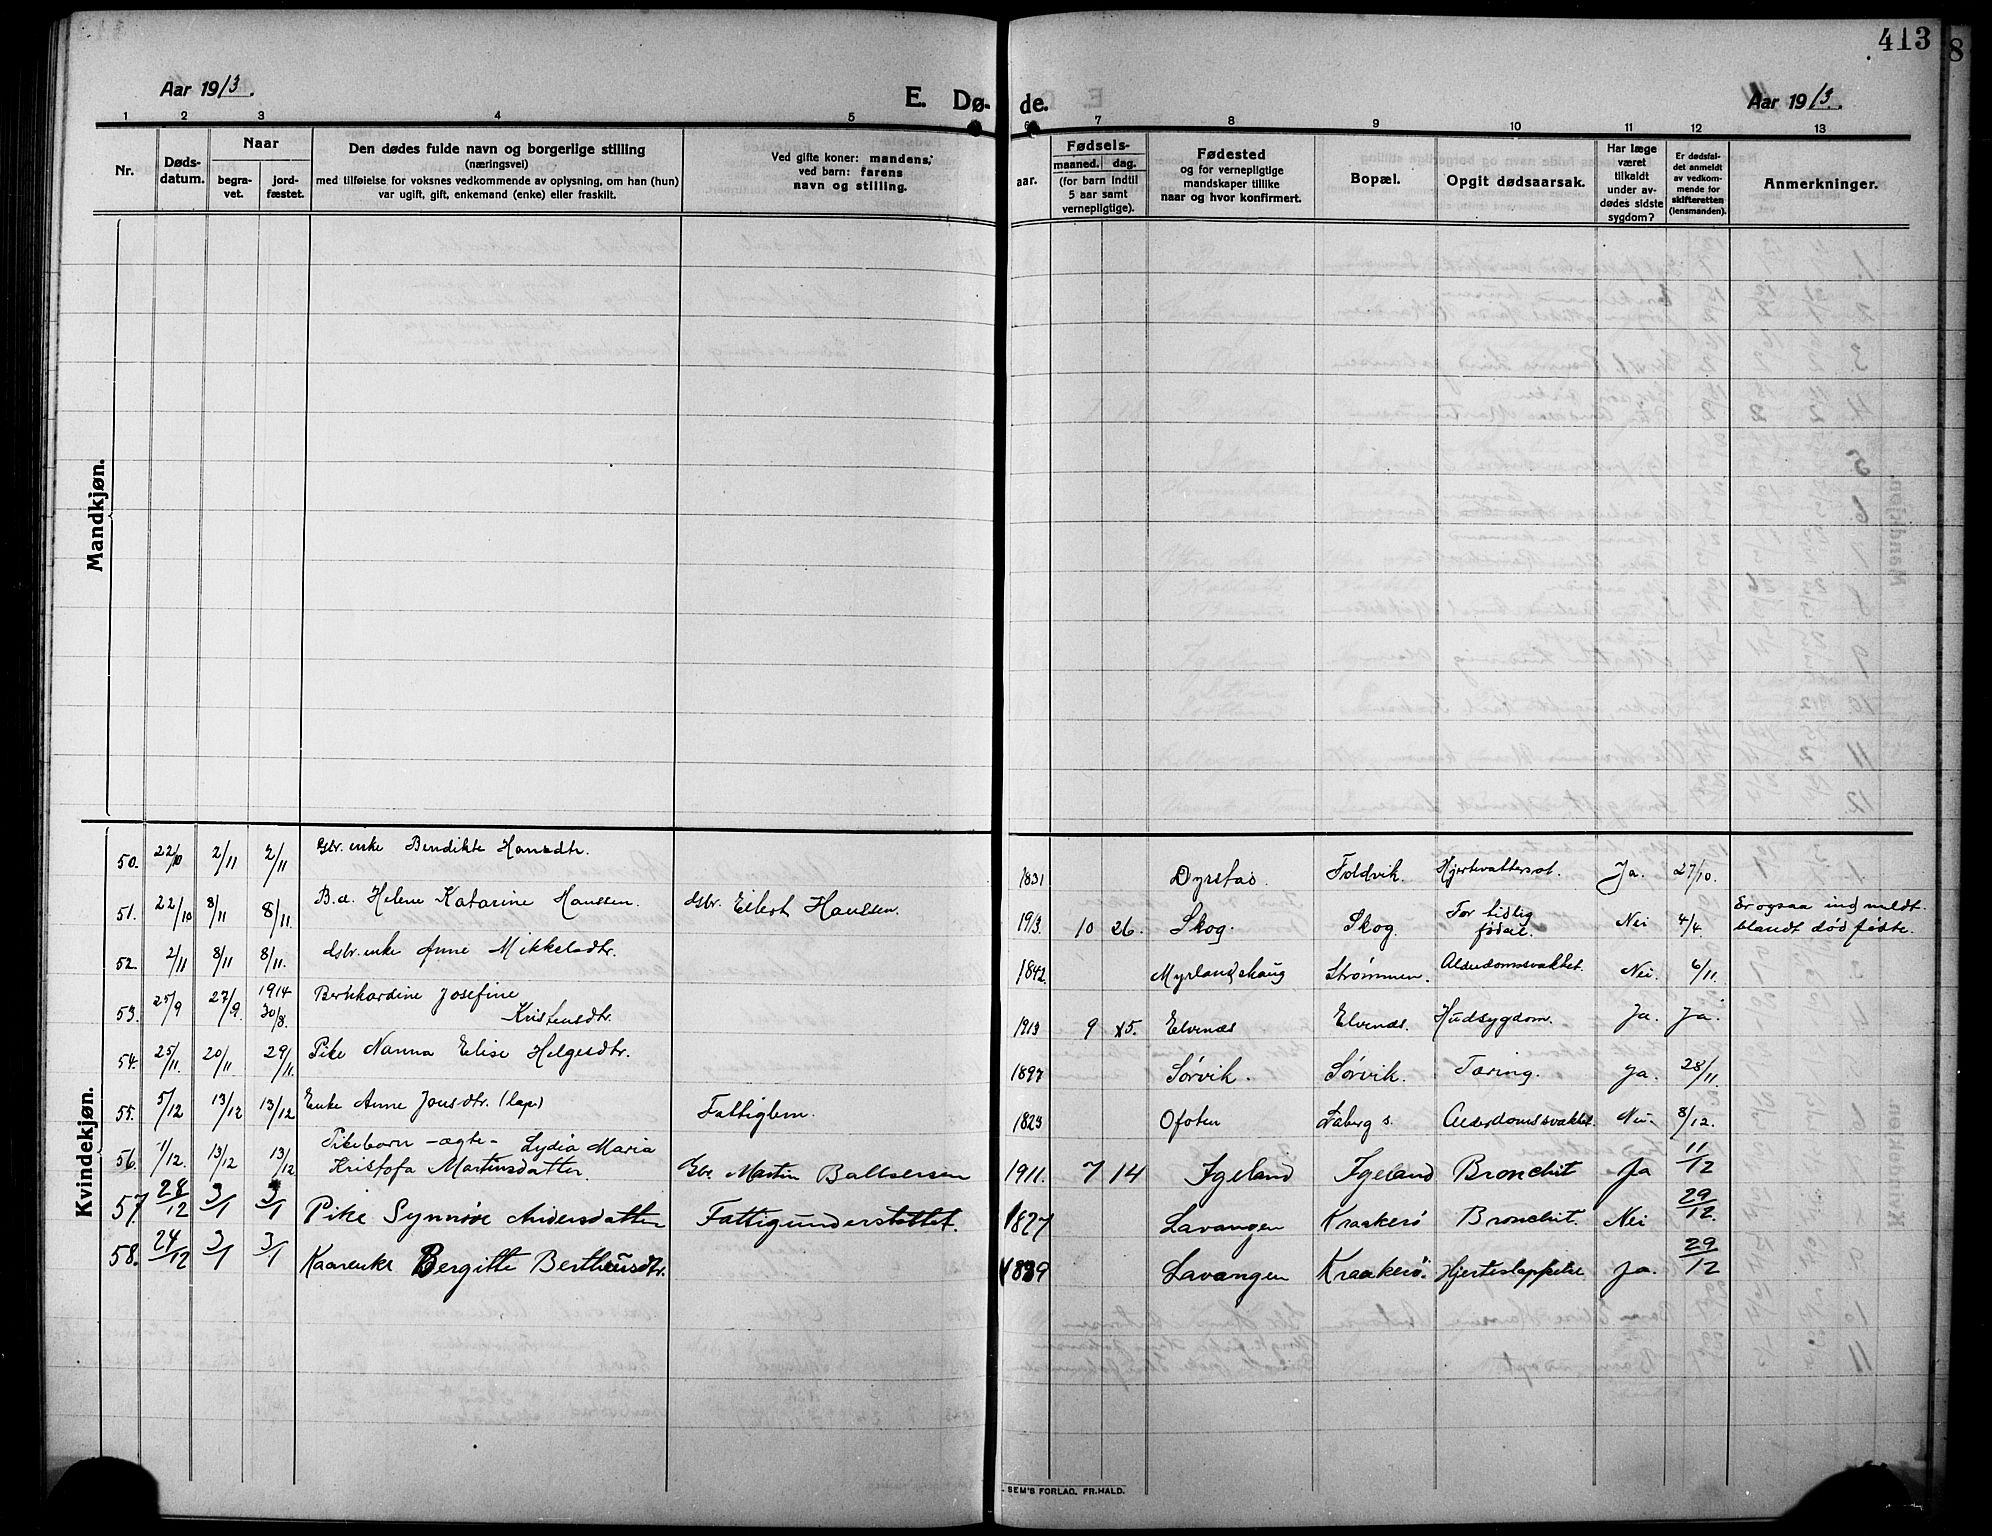 413
8
Aar 1913.
E. Dø-
de.
Aar 1913.
1 2 3 4 5 6 7 8 9 10 11 12 13
Nr.
Døds-
datum.
Naar
begra-
vet.
jord-
fæstet.
Den dødes fulde navn og borgerlige stilling
(næringsvei)
med tilføielse for voksnes vedkommende av oplysning, om han (hun)
var ugift, gift, enkemand (enke) eller fraskilt.
Ved gifte koner: mandens,
ved barn: farens
navn og stilling.
Fødsels-
aar.
maaned. dag.
(for barn indtil
5 aar samt
vernepligtige).
Fødested
og for vernepligtige
mandskaper tillike
naar og hvor konfirmert.
Bopæl.
Opgit dødsaarsak.
Har læge
været
tilkaldt
under av-
dødes sidste
sygdom?
Er dødsfal-
det anmeldt
av vedkom-
mende for
skifteretten
(lensmanden).
Anmerkninger.
Mandkjøn.
Kvindekjøn.
50. 22/10 2/11 2/11 Gbr. enke Bendikte Hansdtr. 1831 Dyrstad. Foldvik. Hjertevattersot. Ja. 27/10.
51. 22/10 8/11 8/11. B.d. Helene Katarine Hanssen. Gbr. Eilert Hanssen. 1913. 10 26. Skog. Skog. For tidlig Nei 4/4. Er ogsaa indmeldt
fødsel. blandt dødfødte.
52. 2/11 8/11 8/11. Gbr. enke Anne Mikkelsdtr. 1842. Myrlandshaug Strømmen. Alderdomssvakhet. Nei. 6/11.
53. 25/9 27/9. 1914 30/8. Bernhardine Josefine
Kristensdtr. 1913 9 5. Elvenæs Elvenæs. Hudsygdom. Ja. Ja
54. 25/11. 20/11 29/11. Pike Nanna Elise Helgesdtr. 1897 Sørvik. Sørvik. Tæring. Ja. 28/11.
55. 5/12 13/12 13/12 Enke Anne Jonsdtr. (lap.) Fattiglem. 1823 Ofoten Faberg s. Alderdomssvakhet. Nei 8/12.
56. 1/12. 13/12 13/12 Pikebarn - ægte - Lydia Maria
Kristofa Martinsdatter. Gbr. Martin Baltsersen 1911. 7 14 Igeland Igeland Bronchit Ja 11/12
57 28/12 3/1 3/1 Pike Synnøve Andersdatter Fattigunderstøttet. 1827 Lavangen Kraakerø Bronchit. Nei 29/12.
58. 24/12 3/1 3/1 Kaarenke Bergitte Bertheusdtr. 1839 Lavangen Kraakerø. Hjerteslappelse Ja. 29/12
SEM'S FORLAG. FR.HALD.